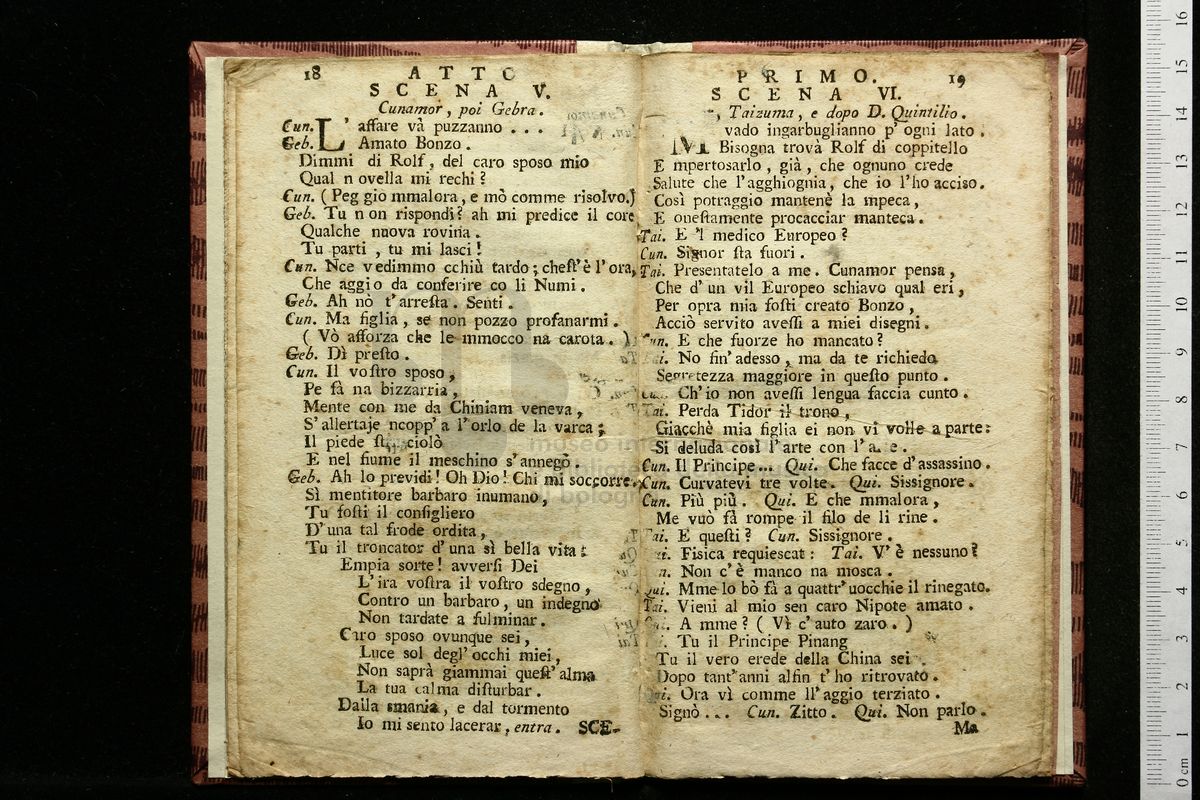 18 ATTO
SCENA V.
Cunamor, poi Gebra.
Cun. L' affare và puzzanno . . .
Geb. Amato Bonzo.
Dimmi di Rolf, del caro sposo mio
Qual n ovella mi rechi?
Cun. (Peg gio mmalora, e mò comme risolvo.)
Geb. Tu n on rispondi? ah mi predice il core
Qualche nuova rovina.
Tu parti, tu mi lasci!
Cun. Nce vedimmo cchiù tardo; chest'è l'ora,
Che aggio da conferire co li Numi.
Geb. Ah nò t'arresta. Senti.
Cun. Ma figlia, se non pozzo profanarmi.
(Vò afforza che le mmocco na carota.)
Geb. Dì presto.
Cun. Il vostro sposo,
Pe fà na bizzarria,
Mente con me da Chiniam veneva,
S'allertaje ncopp'a l'orlo de la varca;
Il piede
E nel fiume il meschino s'annegò.
Geb. Ah lo previdi! Oh Dio! Chi mi soccorre.
Sì mentitore barbaro inumano,
Tu fosti il consigliero
D'una tal frode ordita,
Tu il troncator d'una sì bella vita:
Empia sorte! avversi Dei
L'ira vostra il vostro sdegno,
Contro un barbaro, un indegno
Non tardate a fulminar.
Caro sposo ovunque sei,
Luce sol degl'occhi miei,
Non saprà giammai quest'alma
La tua calma disturbar.
Dalla smania, e dal tormento
Io mi sento lacerar, entra.
SCE-
PRIMO. 19
SCENA VI.
, Taizuma, e dopo D. Quintilio.
vado ingarbuglianno p' ogni lato.
Bisogna trovà Rolf di coppitello
E mpertosarlo, già, che ognuno crede
Salute che l'agghiognia, che io l'ho acciso.
Così potraggio mantenè la mpeca,
E onestamente procacciar manteca.
Tai. E 'l medico Europeo?
Cun. Signor sta fuori.
Tai. Presentatelo a me. Cunamor pensa,
Che d'un vil Europeo schiavo qual eri,
Per opra mia fosti creato Bonzo,
Acciò servito avessi a miei disegni.
Cun. E che fuorze ho mancato?
Tai. No fin'adesso, ma da te richiedo
Segretezza maggiore in questo punto.
Ch'io non avessi lengua faccia cunto.
Tai. Perda Tidor il trono,
Giacchè mia figlia ei non vi volle a parte:
Si deluda così l'arte con l'a
Cun. Il Principe... Qui. Che facce d'assassino.
Cun. Curvatevi tre volte. Qui. Sissignore.
Cun. Più più. Qui. E che mmalora,
Me vuò fà rompe il filo de li rine.
Tai. E questi? Cun. Sissignore.
Fisica requiescat: Tai. V'è nessuno?
Non c'è manco na mosca.
Qui. Mme lo bò fà a quattr'uocchie il rinegato.
Tai. Vieni al mio sen caro Nipote amato.
A mme? (Vì c'auto zaro.)
Tu il Principe Pinang
Tu il vero erede della China sei.
Dopo tant'anni alfin t'ho ritrovato.
Ora vì comme ll'aggio terziato.
Signò... Cun. Zitto. Qui. Non parlo.
Ma